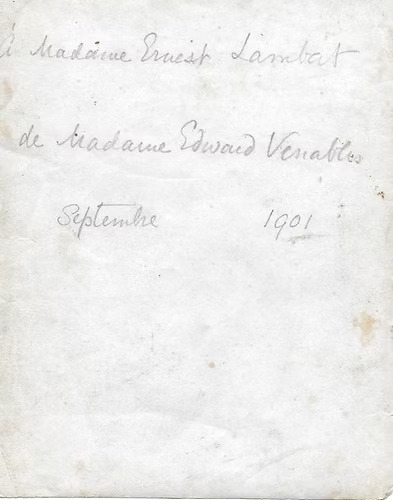 À Madame Ernest Lambert
de Madame Edward Venables
Septembre 1901